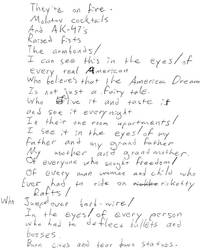 They're on fire.
Molotov cocktails
And AK-47's
Raised fists
The armbands/
I can see this in the eyes/ of
every real American
Who believes that the American Dream
Is not just a fairy tale.
Who live it and taste it
and see it every night
In their one room apartments/
I see it in the eyes/ of my
Father and my grand father
My mother and grand mother.
Of everyone who sought freedom/
Of every man woman and child who
Ever had to ride on rickety
Rafts/
Who Jump over barb-wire/
In the eyes/ of every person
who had to deflect bullets and
busses.
Burn cines and tear two statues.